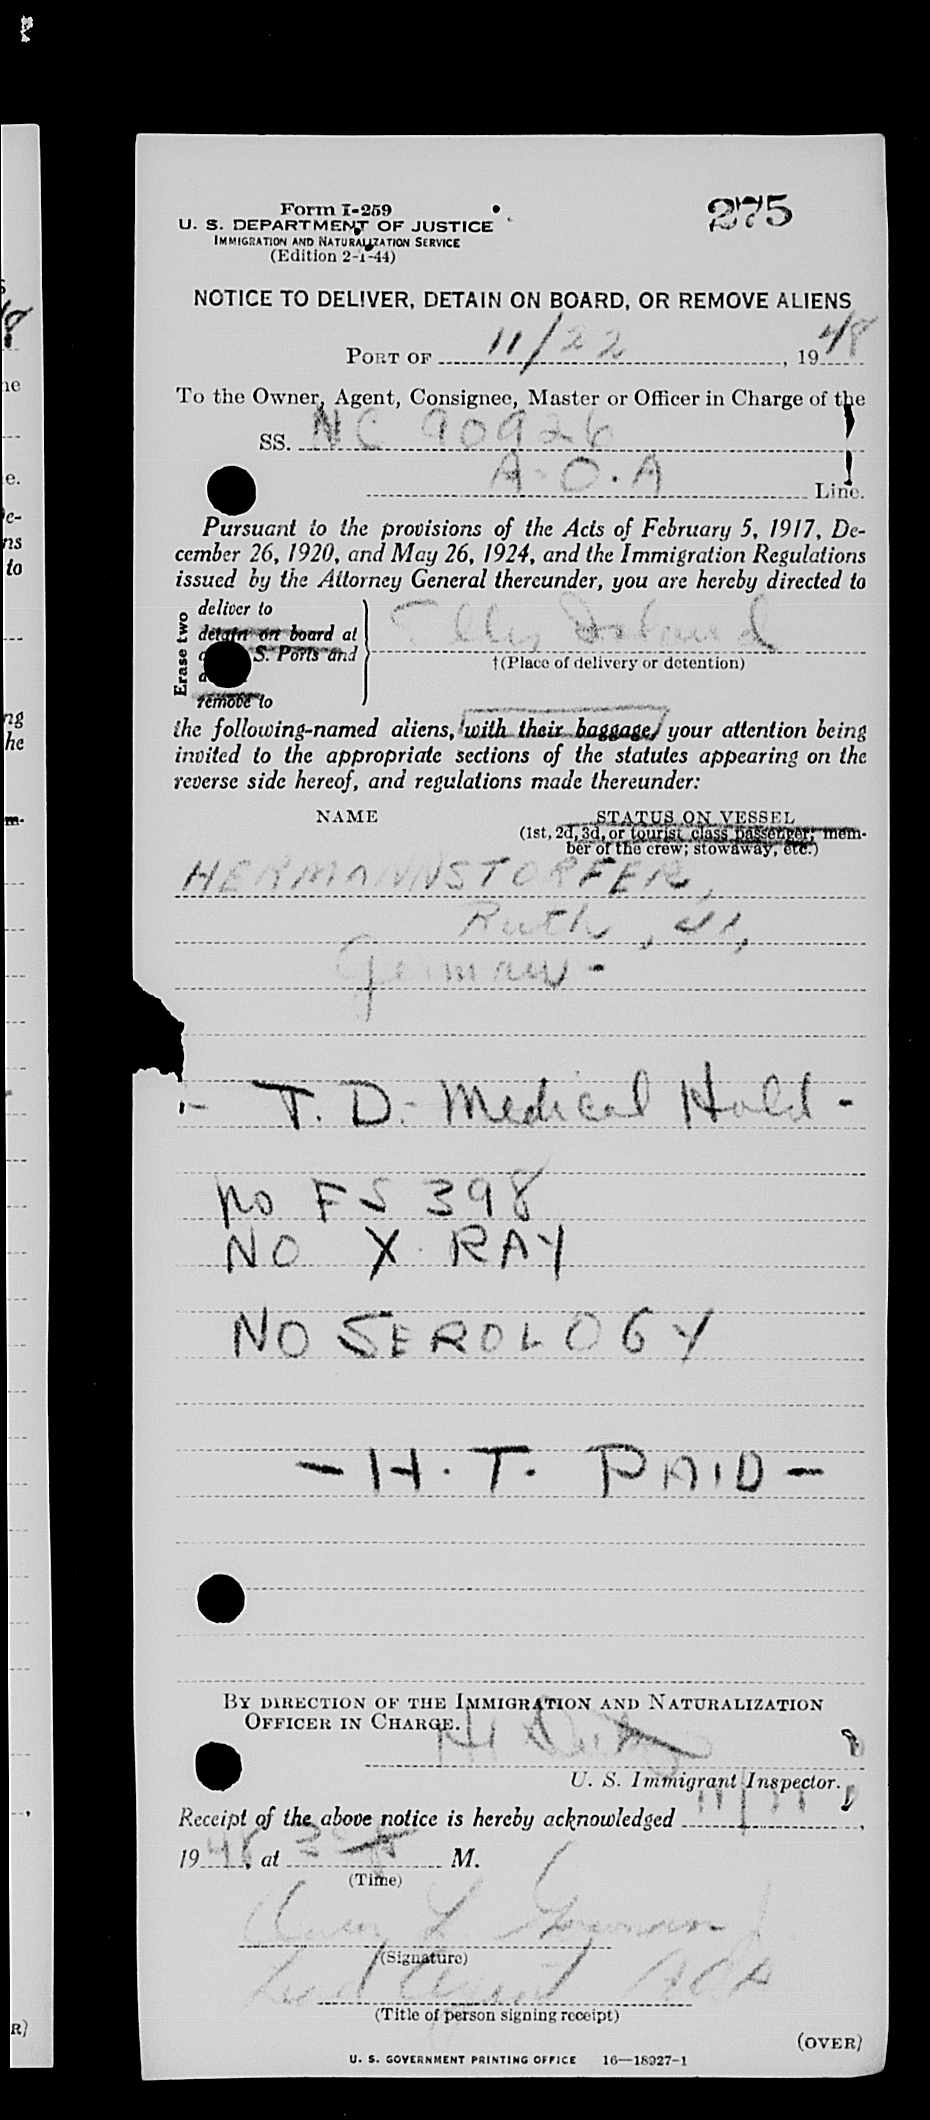 275
Form I-259
U. S. DEPARTMENT OF JUSTICE
IMMIGRATION AND NATURALIZATION SERVICE
(Edition 2-1-44)
NOTICE TO DELIVER, DETAIN ON BOARD, OR REMOVE ALIENS
PORT OF 11/22, 1948
To the Owner, Agent, Consignee, Master or Officer in Charge of the
SS. NC 90926
A.O.A Line.
Pursuant to the provisions of the Acts of February 5, 1917, De-
cember 26, 1920, and May 26, 1924, and the Immigration Regulations
issued by the Attorney General thereunder, you are hereby directed to
Erase two
deliver to
detain on board at
S. Ports and
remove to
Ellis Island
†(Place of delivery or detention)
the following-named aliens, with their baggage, your attention being
invited to the appropriate sections of the statutes appearing on the
reverse side hereof, and regulations made thereunder:
NAME STATUS ON VESSEL
(1st, 2d, 3d, or tourist class passenger; mem-
ber of the crew; stowaway, etc.)
HERMANNSTORFER,
Ruth, 41,
German -
- T. D. - Medical Hold -
No FS 398
NO X RAY
NO SEROLOGY
- H. T. PAID -
BY DIRECTION OF THE IMMIGRATION AND NATURALIZATION
OFFICER IN CHARGE.
U. S. Immigrant Inspector.
Receipt of the above notice is hereby acknowledged
1948, at M.
(Time)
(Signature)
Agent AOA
(Title of person signing receipt)
(OVER)
U. S. GOVERNMENT PRINTING OFFICE 16—18927-1